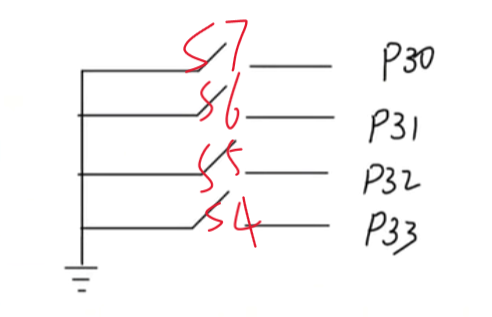 S7 P30
S6 P31
S5 P32
S4 P33